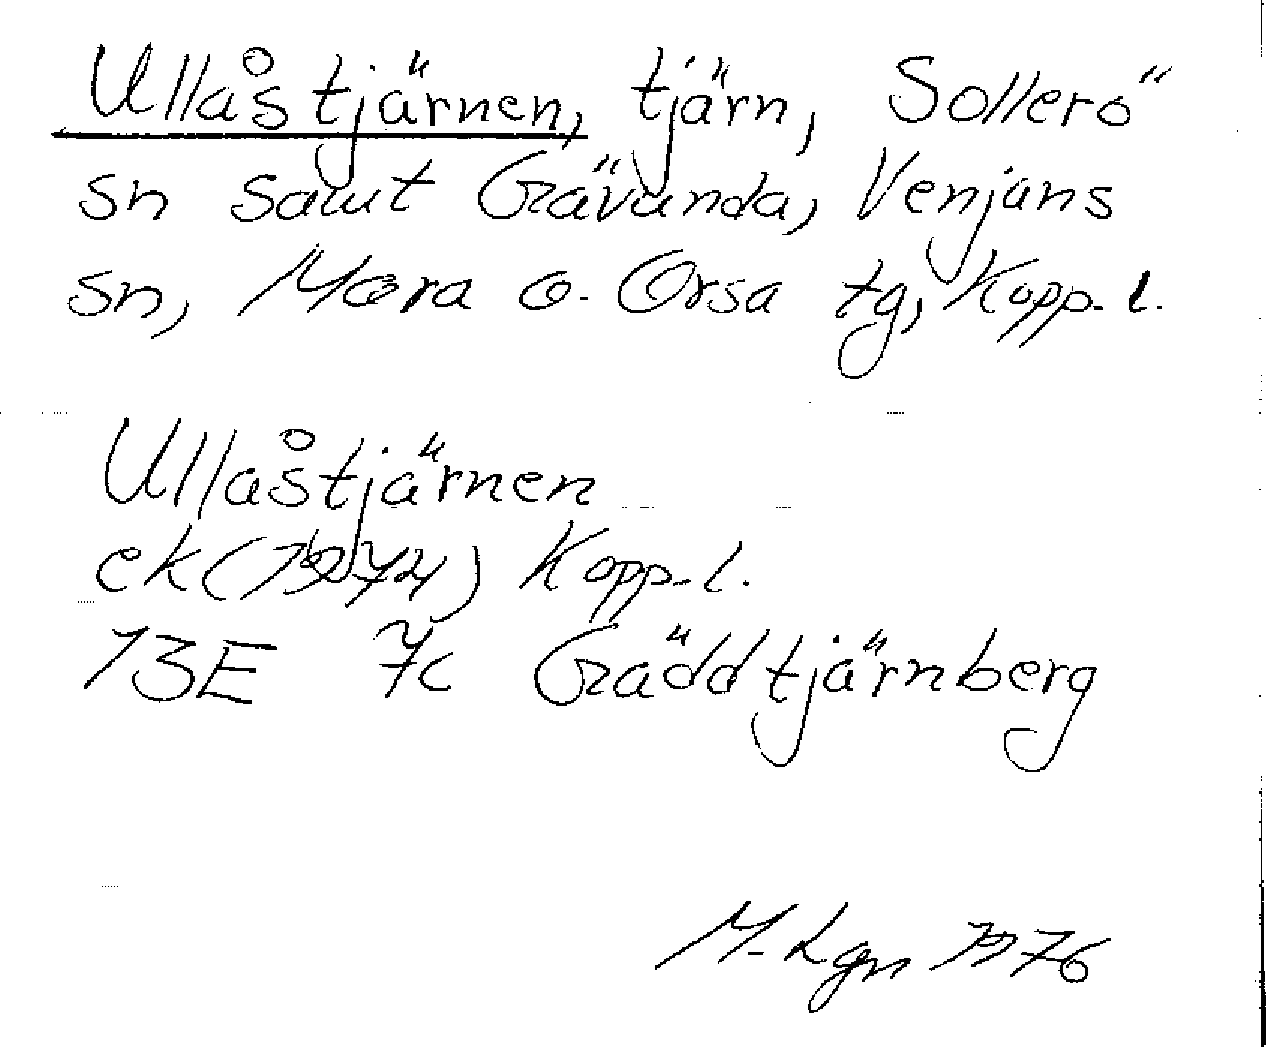 Ullåstjärnen, tjärn, Sollerö
sn samt Gävunda, Venjans
sn, Mora o. Orsa tg, Kopp. l.
Ullåstjärnen
ek (1974) Kopp. l.
13E 7c Gäddtjärnberg
M. Lgn 1976